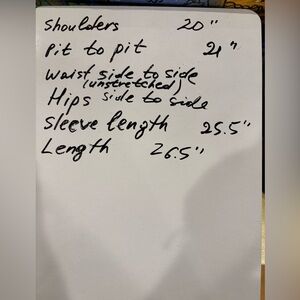 Shoulders 20"
Pit to pit 21"
Waist side to side
(unstretched)
Hips side to side
Sleeve length 25.5"
Length 26.5"